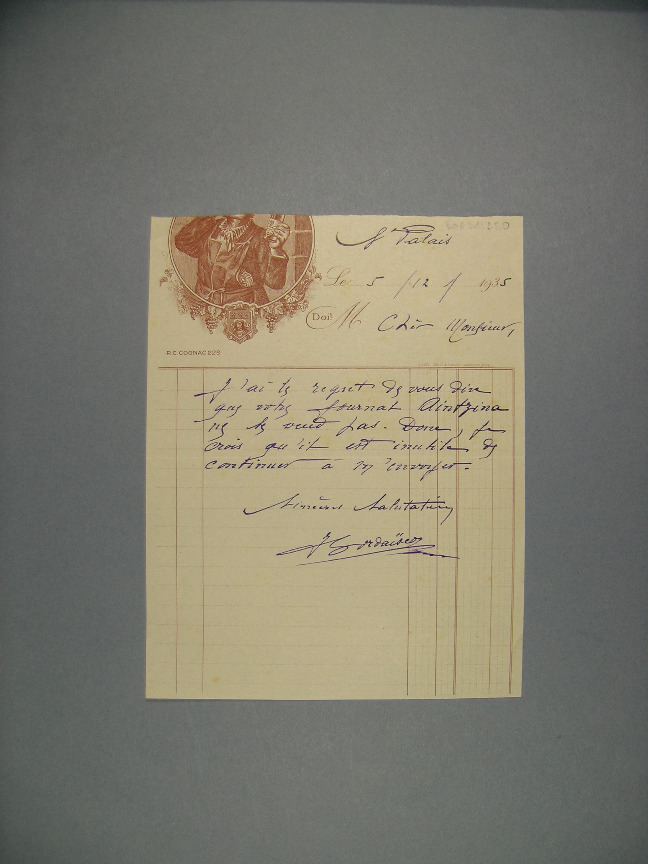 St Palais
Le 5 / 12 / 1935
Doit M
Cher Monsieur,
R.C. COGNAC 225
J'ai le regret de vous dire
que votre journal Aintzina
ne se vend pas. Donc, je
crois qu'il est inutile de
continuer à m'envoyer.
Sincères Salutations